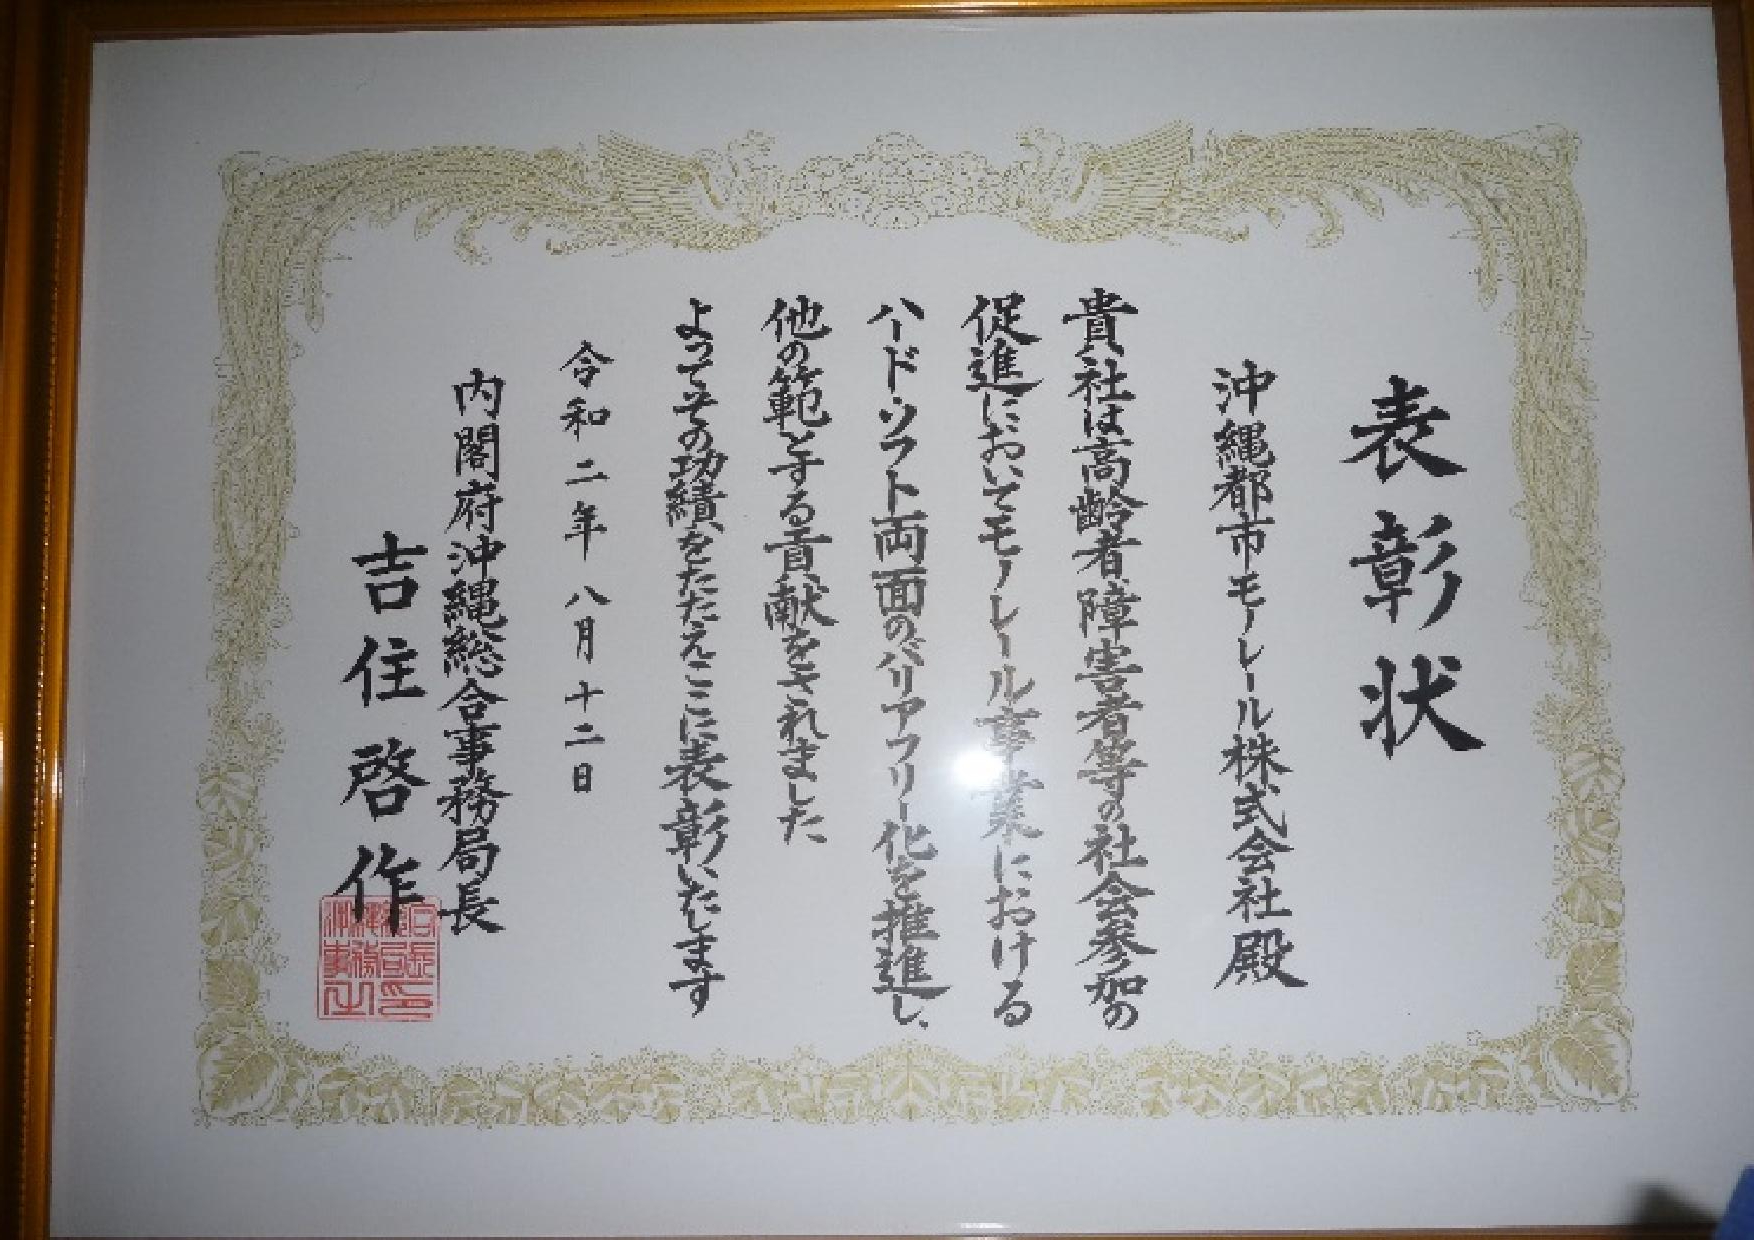 表彰状
沖縄都市モノレール株式会社殿
貴社は高齢者、障害者等の社会参加の
促進においてモノレール事業における
ハード・ソフト両面のバリアフリー化を推進し、
他の範とする貢献をされました
よってその功績をたたえここに表彰いたします
令和二年八月十二日
内閣府沖縄総合事務局長
吉住啓作